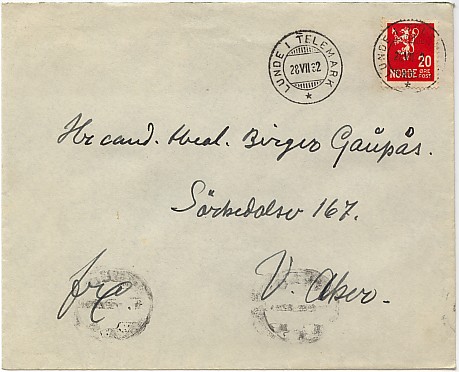 LUNDE I TELEMARK
28 VII 32
UNDE
20
NORGE ØRE POST
Hr cand. theol. Birger Gaupås.
Sörkedalsv 167.
fra V. Aker.